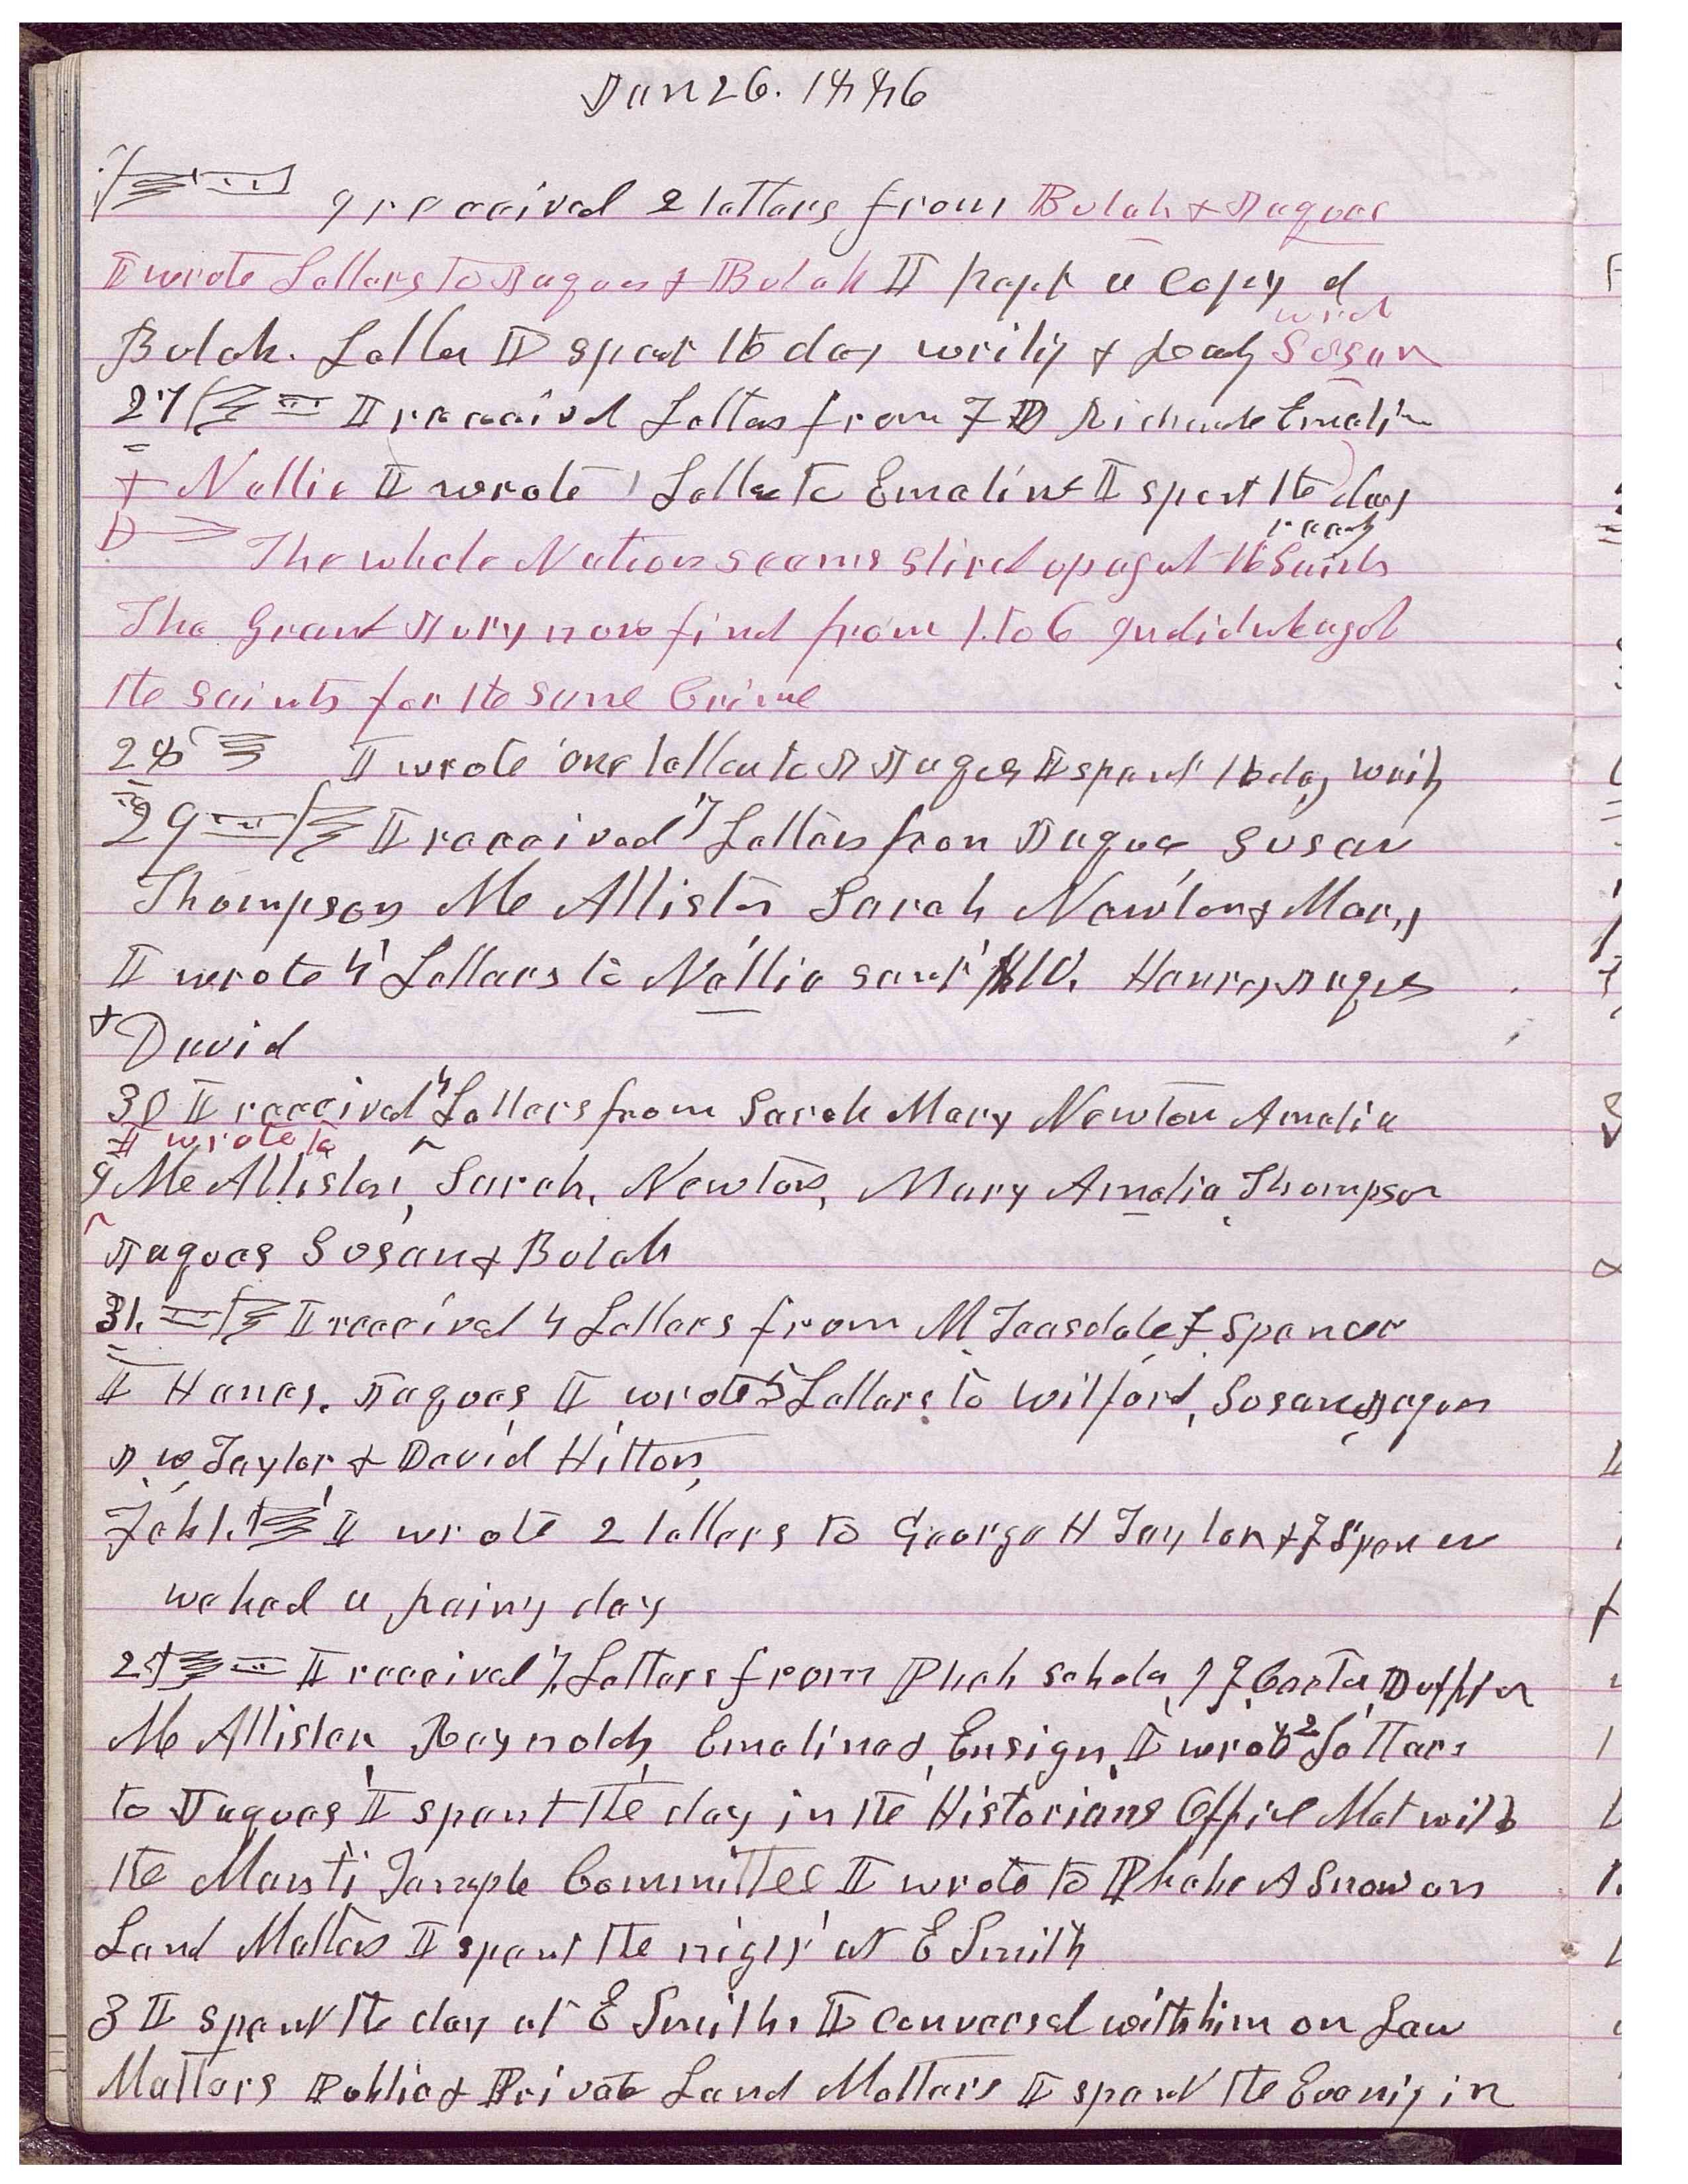 Jan 26. 1886
I received 2 letters from Bulah & Jaques
I wrote Letters to Jaques & Bulah I kept a Copy of
Bulah. Letter I spent the day writing & with Susan
27 I receeivd Letters from F D Richards Emeline
& Nellie I wrote 1 Letter to Emeline I spent the day
The whole Nation seems stird up against the Saints
The Grand Jury now find from 1. to 6 against
the saints for the same Crime
28 I wrote one letter to J Jaques I spent the day
29 I receeived 7 Letters from Jaques Susan
Thompson McAllister Sarah Newton & Mary
I wrote 4 Letters to Nellie sent $10. Henry, Jaques
& David
30 I received 4 Letters from Sarah Mary Newton Amelia
I wrote to
9 McAllister, Sarah, Newton, Mary Amelia, Thompson
Jaques Susan & Bulah
31. I received 4 Letters from M Teasdale F Spencer
Jaques, I wrote 5 Letters to Wilford, Susan, Jaques
J W Taylor & David Hilton
Feb 1. I wrote 2 letters to George H Taylor & F Spencer
we had a rainy day
2 I received 7 Letters from
McAllister, Reynolds, Emeline &, Ensign, I wrote 2 Letters
to Jaques I spent the day in the Historians Office Met with
the Manti Temple Committee I wrote to Phebe A Snow on
Land Matters I spent the night at E Smith
3 I spent the day at E Smiths I Conversed with him on Law
Matters Public & Private Land Matters I spent the Evenig in